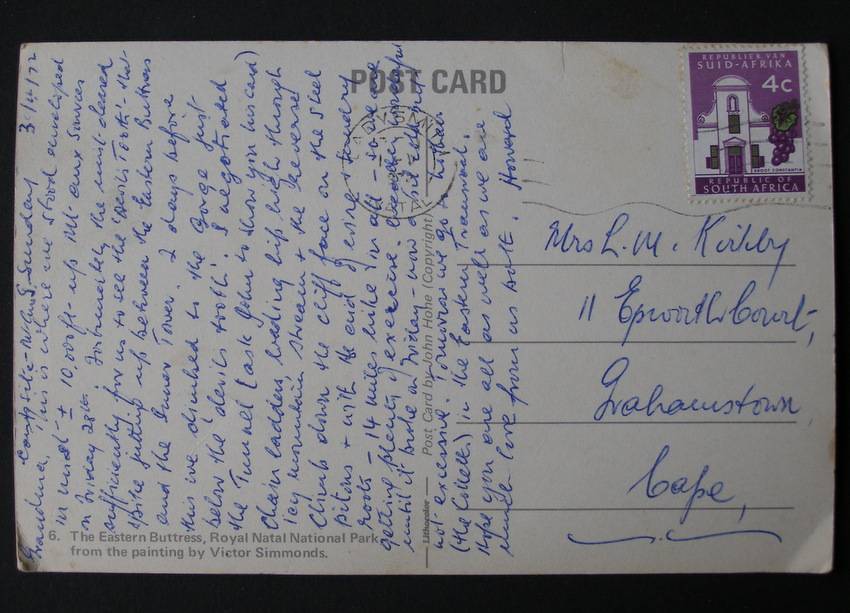 POST CARD
REPUBLIEK VAN
SUID-AFRIKA
4c
GROOT CONSTANTIA
REPUBLIC OF
SOUTH AFRICA
Sunday
Grandma, This is where we stood enveloped
in mist ± 10,000 ft up Mt aux Sources
on Friday 28th. Fortunately the mist cleared
sufficiently for us to see the Devils Tooth - that
spike jutting up between the Eastern Buttress
and the Inner Tower. 2 days before
this we climbed to the gorge just
below the 'devils tooth'. I negotiated
the Tunnel (ask John to show you his card)
Chain ladders, wading hip high through
icy mountain stream & the reverse
climb down the cliff face on the steel
pitons & with the aid of using sundry
roots - 14 miles hike in all - so we are
getting plenty of exercise. Weather
until it broke on Friday - now
not excessive. Tomorrow we go
(the Colletts) in the Eastern Transvaal.
Hope you are all as well as we are
Much love from us both. Howard
Mrs L. M. Kirkby
11 Epworth Court,
Grahamstown,
Cape,
Post Card by John Hone (Copyright)
6. The Eastern Buttress, Royal Natal National Park
from the painting by Victor Simmonds.